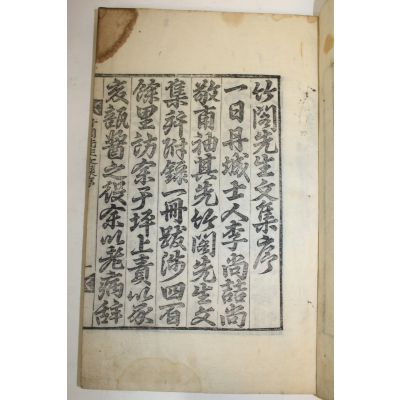 竹閣先生文集序
一日丹城士人李尚喆尚
敬甫袖其先竹閣先生文
集并附錄一冊跋涉四百
餘里訪余于坪上責以玄
晏瓿醬之役余以老病辭